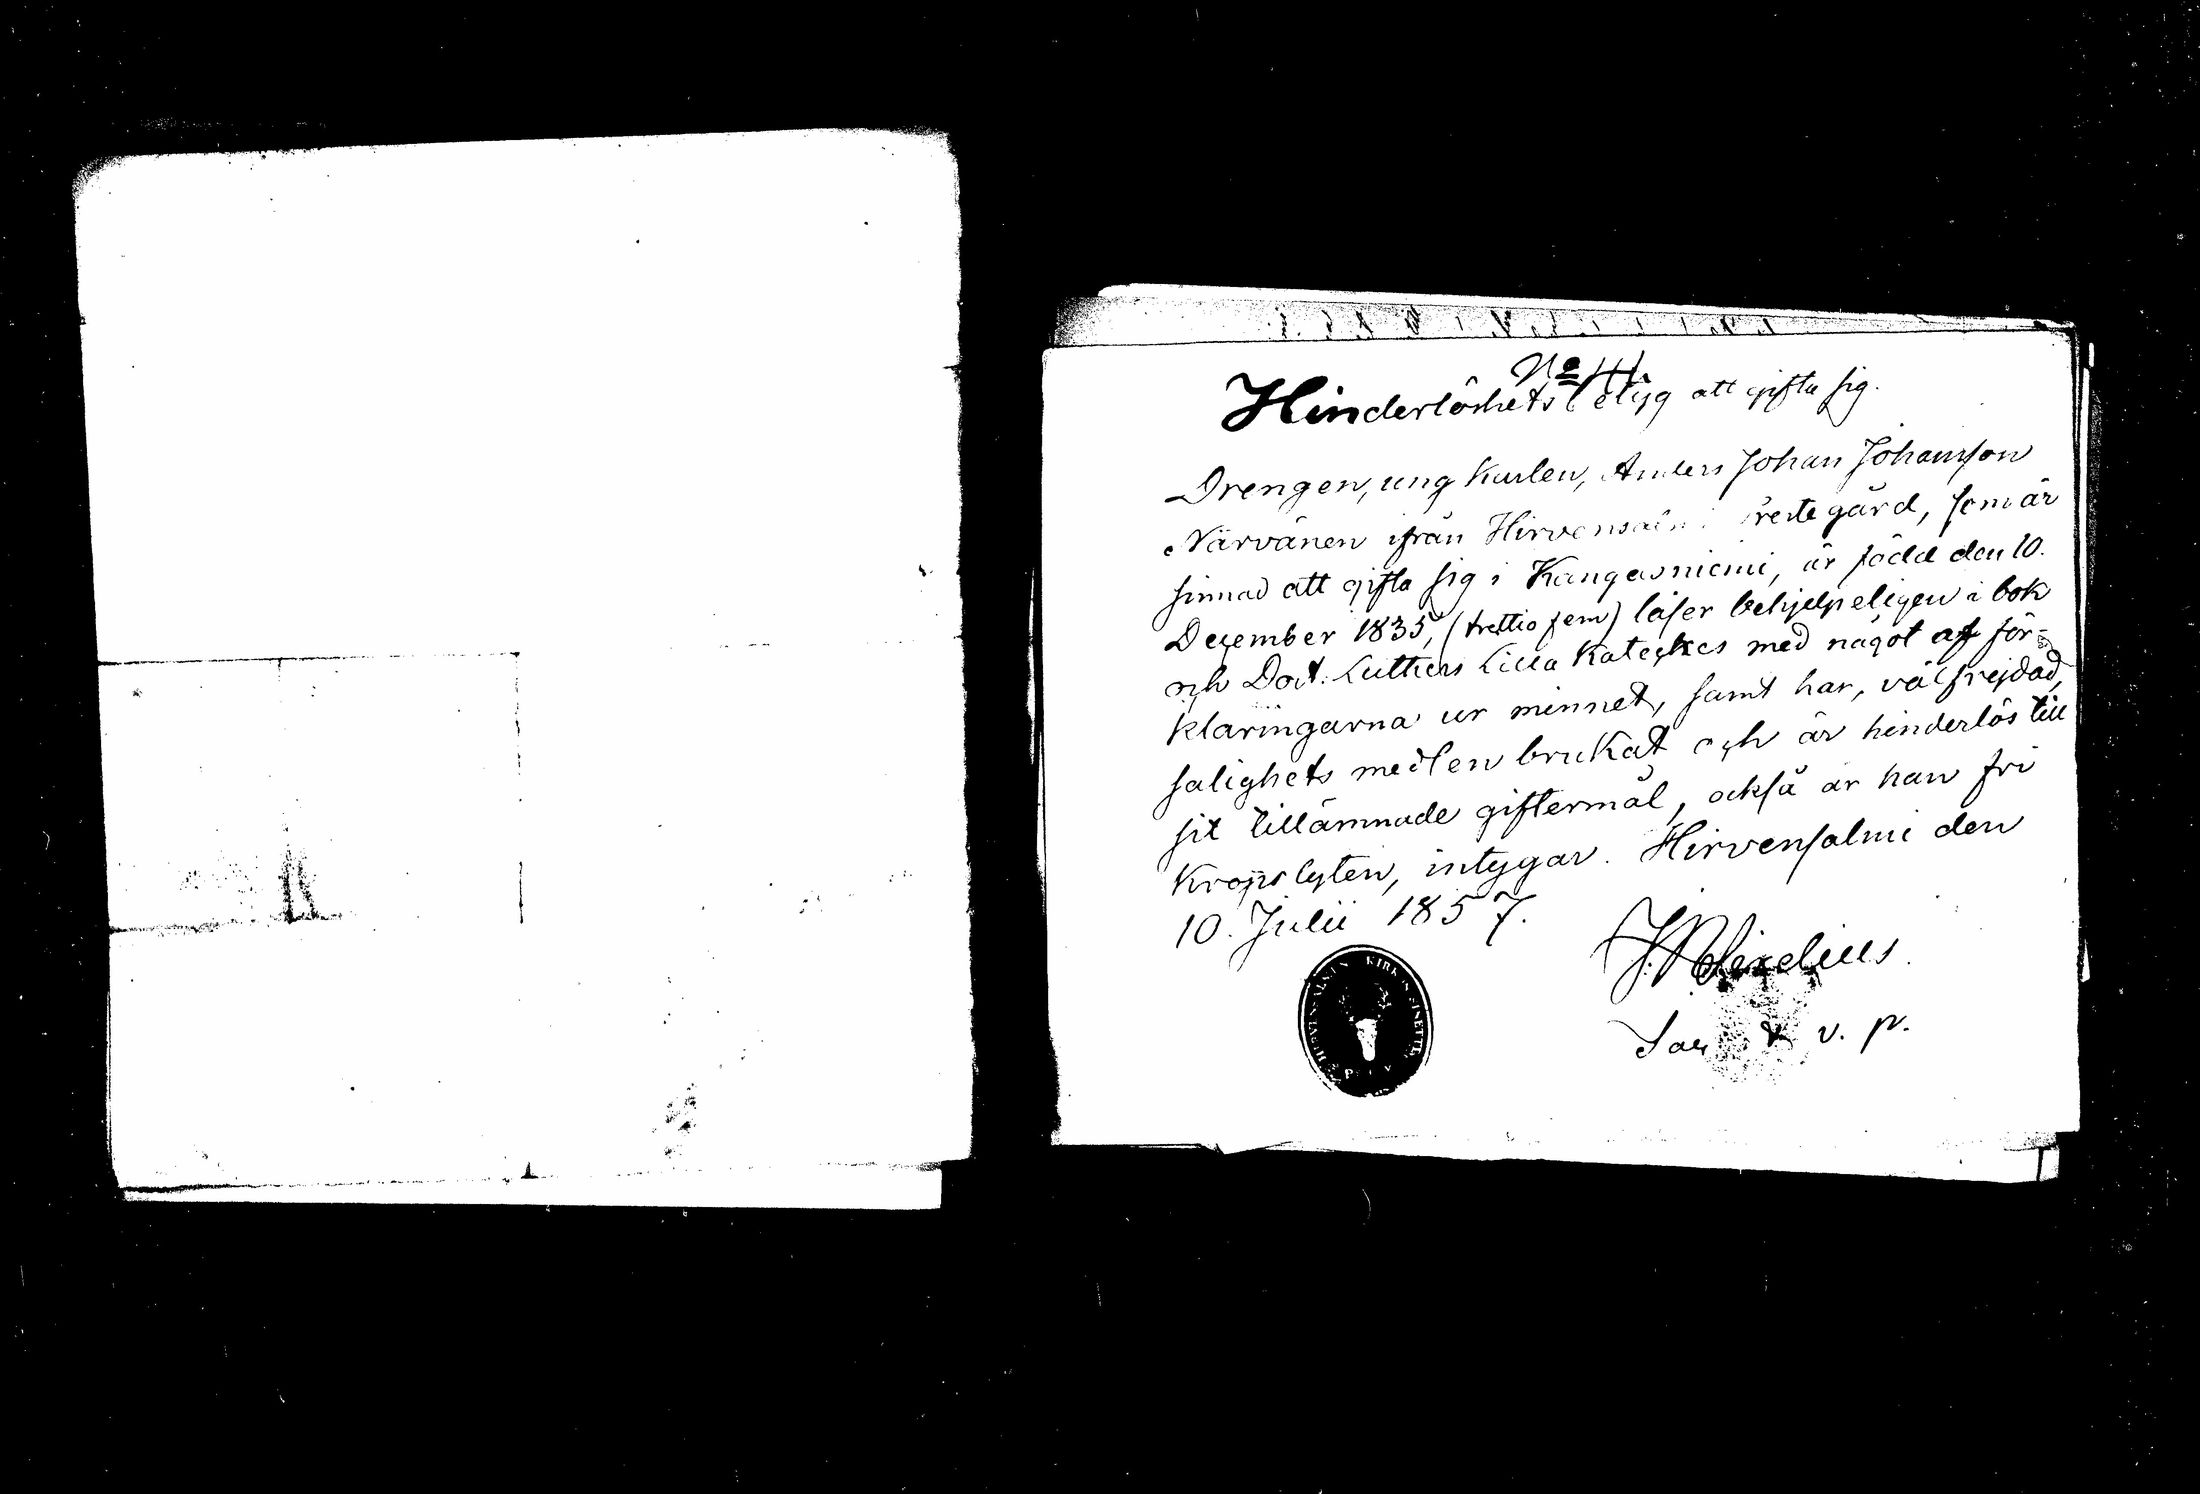 No 44.
Hinderlöshetsbetyg att gifta sig.
Drengen, ung karlen, Anders Johan Johansson
Närvänen ifrån Hirvensalmi Prestegård, som är
sinnad att gifta sig i Kangasniemi, är född den 10.
December 1835, (trettio fem) läser behjelpeligen i bok
och Doct. Luthers Lilla Kateches med något af för-
klaringarna ur minnet, samt har, väl frejdad,
salighets medlen brukat och är hinderlös till
sit tillämnade giftermål, också är han fri
Kropslyten, intygar. Hirvensalmi den
10. Julii 1857.
v. p.
HIRVENSALMEN KIRKON SINETTI